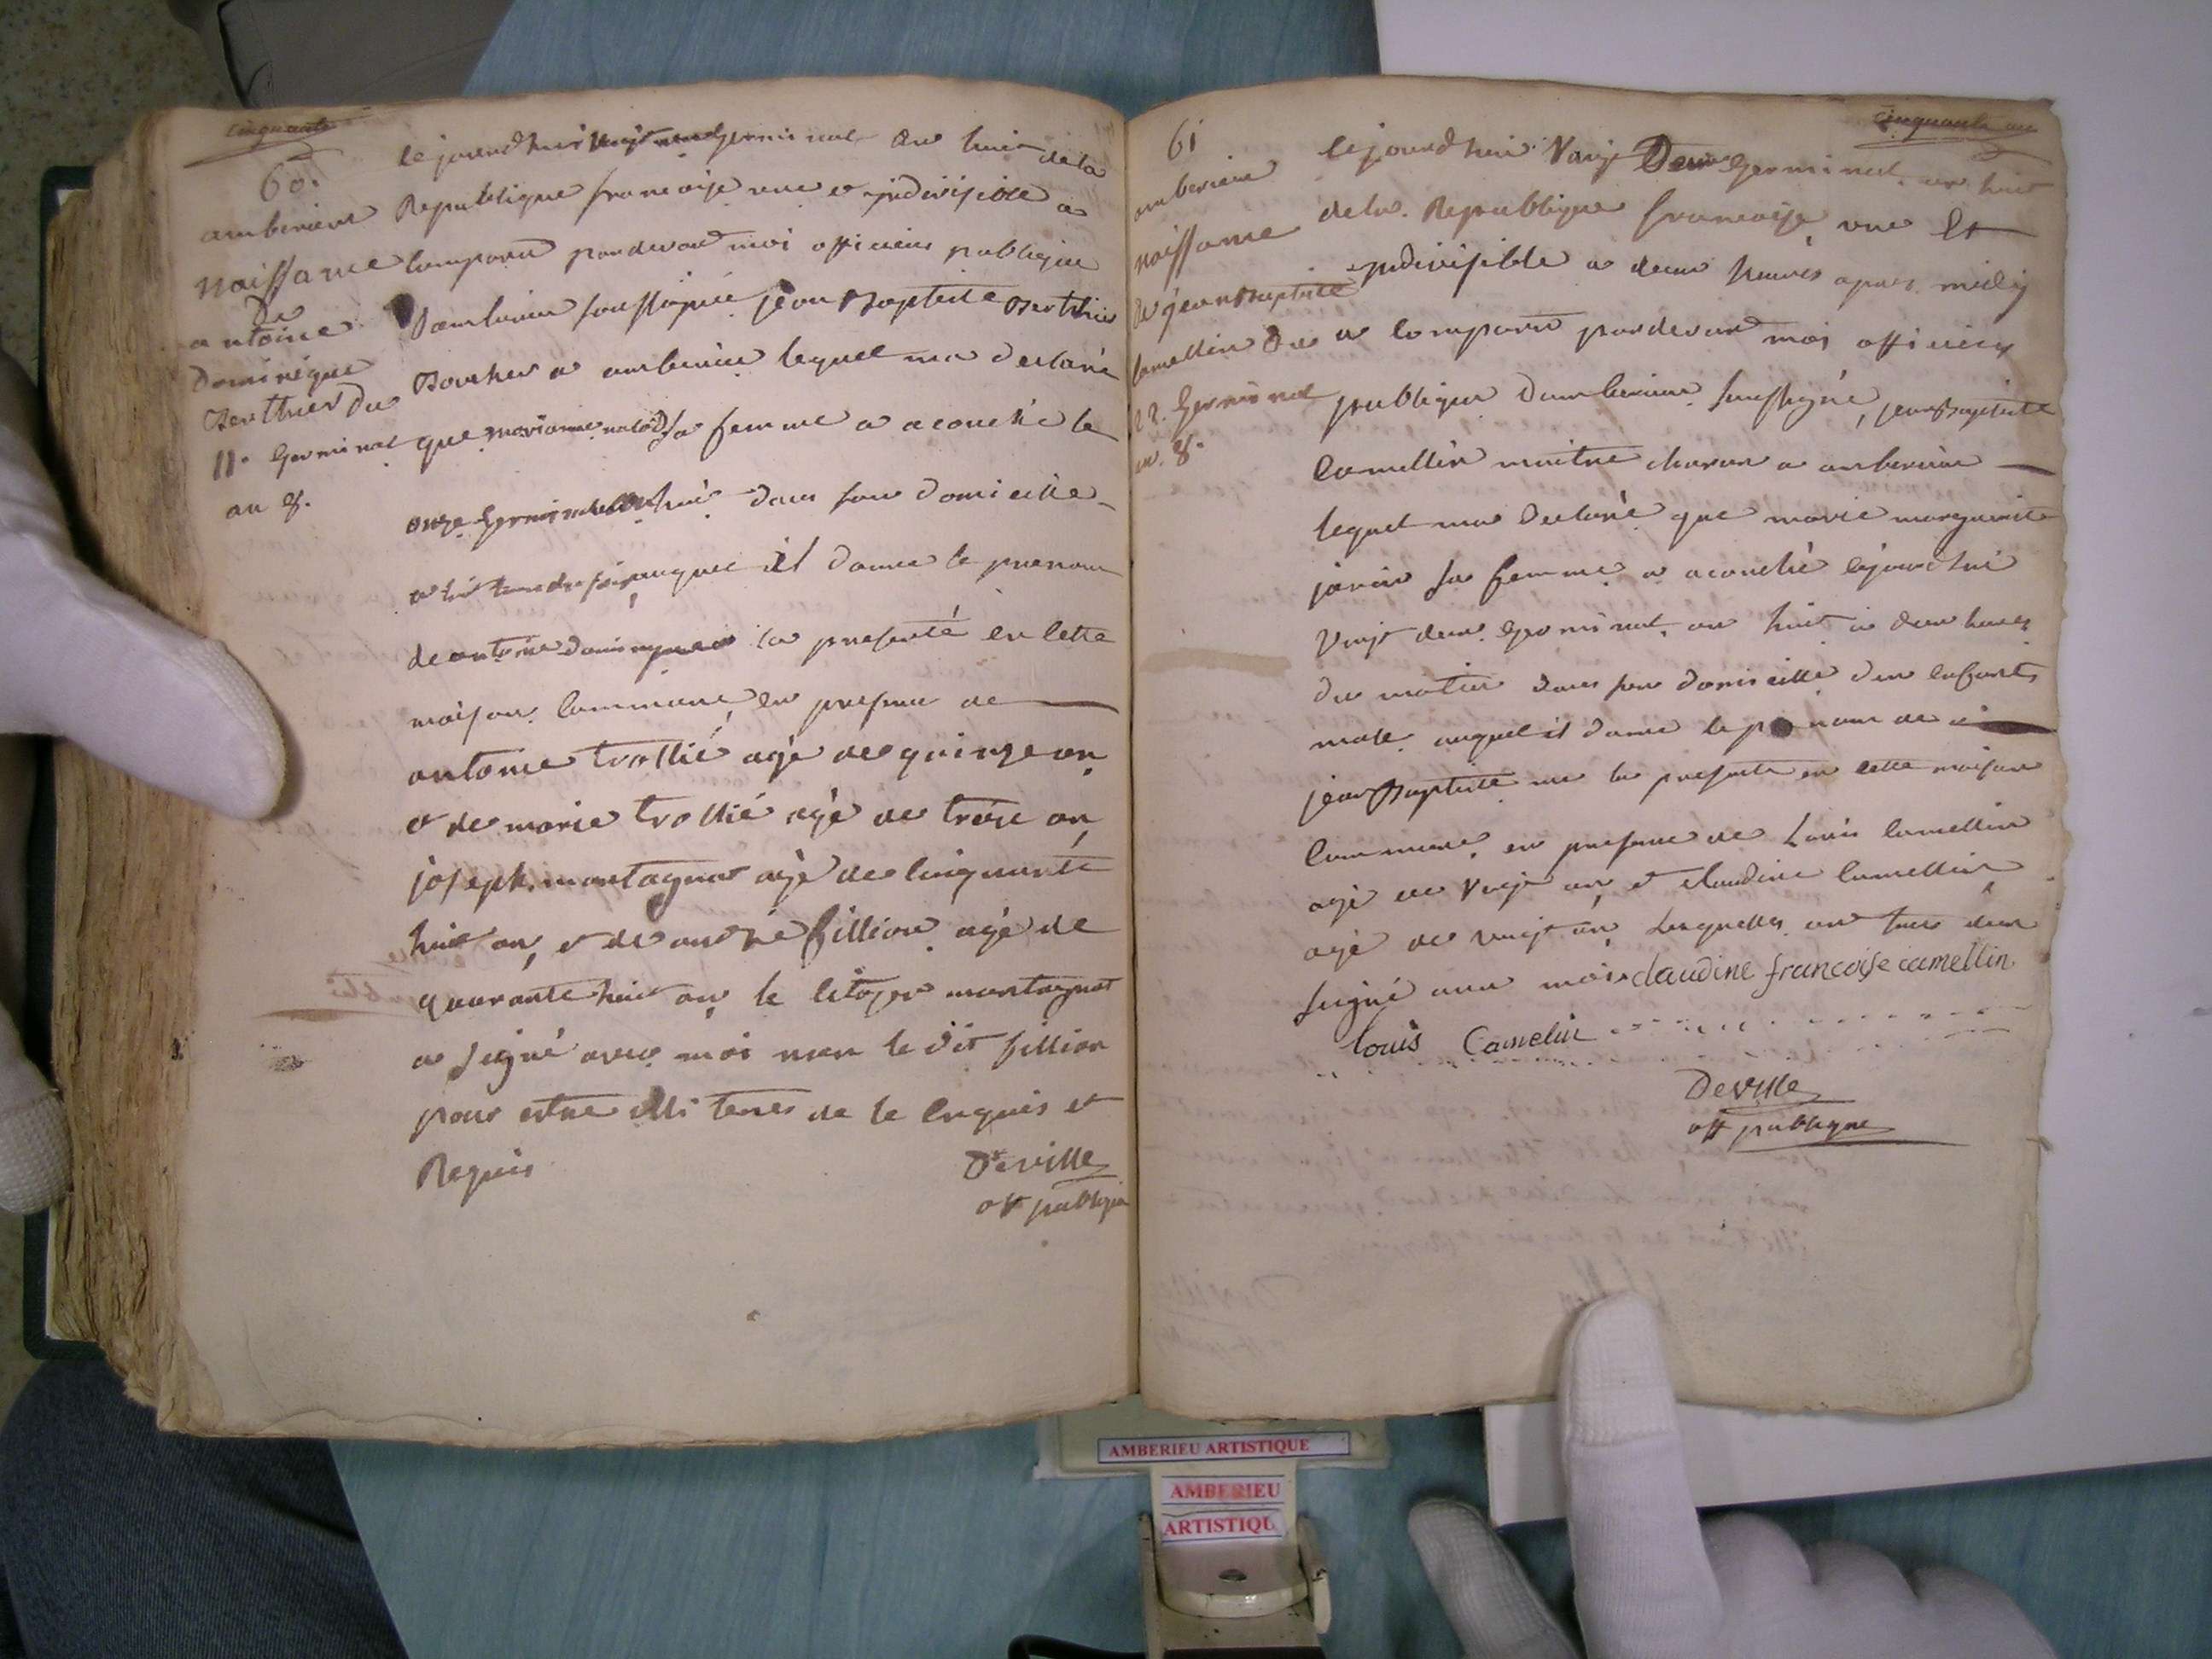 cinquante
60.
amberieux
naissance
de
antoine
Dominique
Berthier du
11. Germinal
an 8.
cejourdhui vingt Germinal an huit dela
Republique francoise une et jndivisible a
comparu pardevant moi officier publique
Damberieu soussigné jean Baptiste Berthier
Boucher a amberieu lequel ma declaré
que marianne sa femme a acouché le
onze Germinal an huit dans son domicille
auquel il donne le prenom
de antoine dominique la presenté en cette
maison commune en presence de
antoine trollié agé de quinze an
et de marie trollié agé de treise an
joseph montagnat agé de cinquante
huit an, et de andré fillion agé de
quarante huit an le citoyen montagnat
a signé avec moi non le dit fillion
pour estre illi terés de le enquis et
Requis
Deville
off publique
cinquante un
61
amberieux
naissance
de jean Baptiste
camellin du
22. Germinal
an. 8.
cejourdhui Vingt Deux Germinal an huit
dela Republique francoise une et
jndivisible a deux heures apres midy
a comparu pardevant moi officier
publique Damberieu soussigné, jean Baptiste
camellin maitre charon a amberieu
lequel ma declaré que marie margueritte
janin sa femme a acouché cejourdhui
Vingt deux Germinal an huit a deux heures
du matin dans son domicille d'un enfant
male auquel il donne le prenom de
jean Baptiste me la presenté en cette maison
commune en presence de Louis camellin
agé de Vingt an et claudine camellin
agé de vingt an lesquelles on tous deux
signé avec moi claudine francoise camellin
louis Camelin
Deville
off publique
AMBERIEU ARTISTIQUE
AMBERIEU
ARTISTIQU